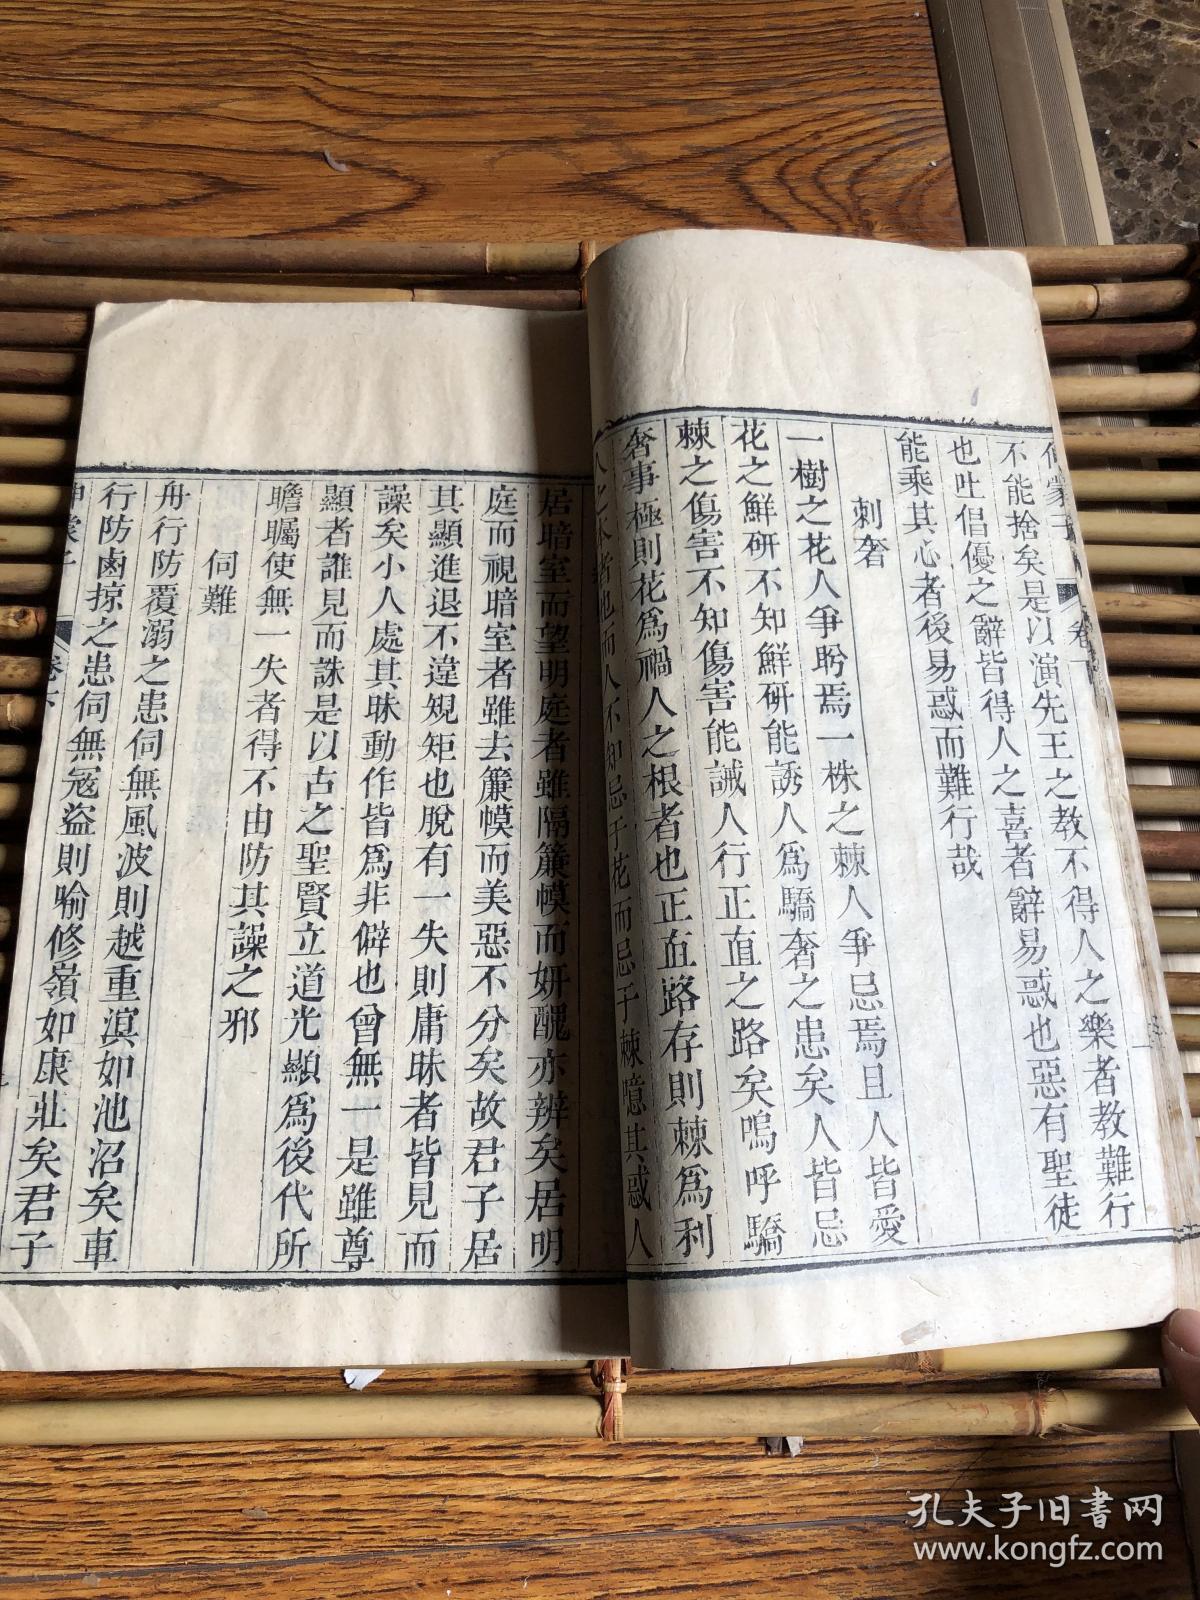 不能捨矣是以演先王之教不得人之樂者教難行
也吐倡優之辭皆得人之喜者辭易惑也惡有聖徒
能乘其心者後易惑而難行哉
刺奢
一樹之花人爭盻焉一株之棘人爭忌焉且人皆愛
花之鮮妍不知鮮妍能誘人爲驕奢之患矣人皆忌
棘之傷害不知傷害能誡人行正直之路矣嗚呼驕
奢事極則花爲禍人之根者也正直路存則棘爲利
人之本者也而人不知忌于花而忌于棘噫其惑人
居暗室而望明庭者雖隔簾幙而妍醜亦辨矣居明
庭而視暗室者雖去簾幙而美惡不分矣故君子居
其顯進退不違規矩也脫有一失則庸昧者皆見而
譟矣小人處其昧動作皆爲非僻也曾無一是雖尊
顯者誰見而誅是以古之聖賢立道光顯爲後代所
瞻矚使無一失者得不由防其譟之邪
伺難
舟行防覆溺之患伺無風波則越重溟如池沼矣車
行防鹵掠之患伺無寇盜則喻修嶺如康莊矣君子
卷下
孔夫子旧书网
www.kongfz.com